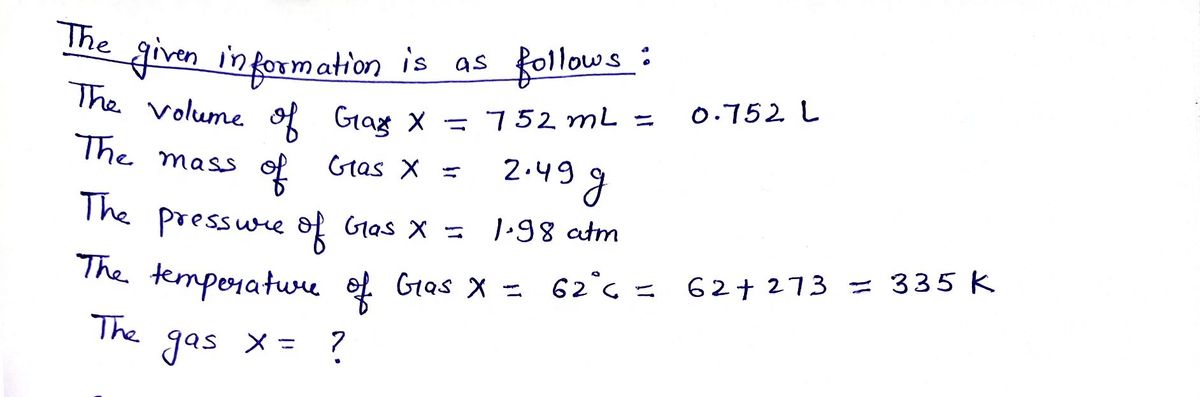 The given information is as follows :
The volume of Gas X = 752 mL = 0.752 L
The mass of Gas X = 2.49 g
The pressure of Gas X = 1.98 atm
The temperature of Gas X = 62°C = 62 + 273 = 335 K
The gas X = ?